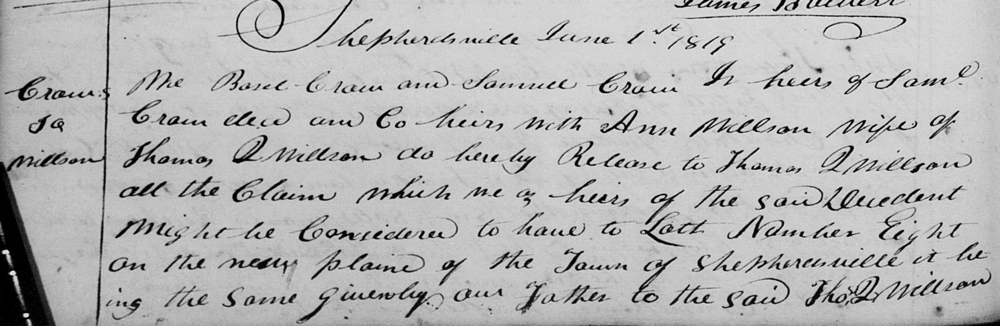 Shepherdsville June 1st. 1819
Crows
To
Willson
We Basel Crow and Samuel Crow Jr heirs of Saml.
Crow decd and Co heirs with Ann Willson Wife of
Thomas Q Willson do hereby Release to Thomas Q Willson
all the Claim which we as heirs of the said Decedent
Might be Considered to have to Lott Number Eight
on the new plaine of the Town of Shepherdsville it be
ing the same given by our Father to the said Tho. Q Willson